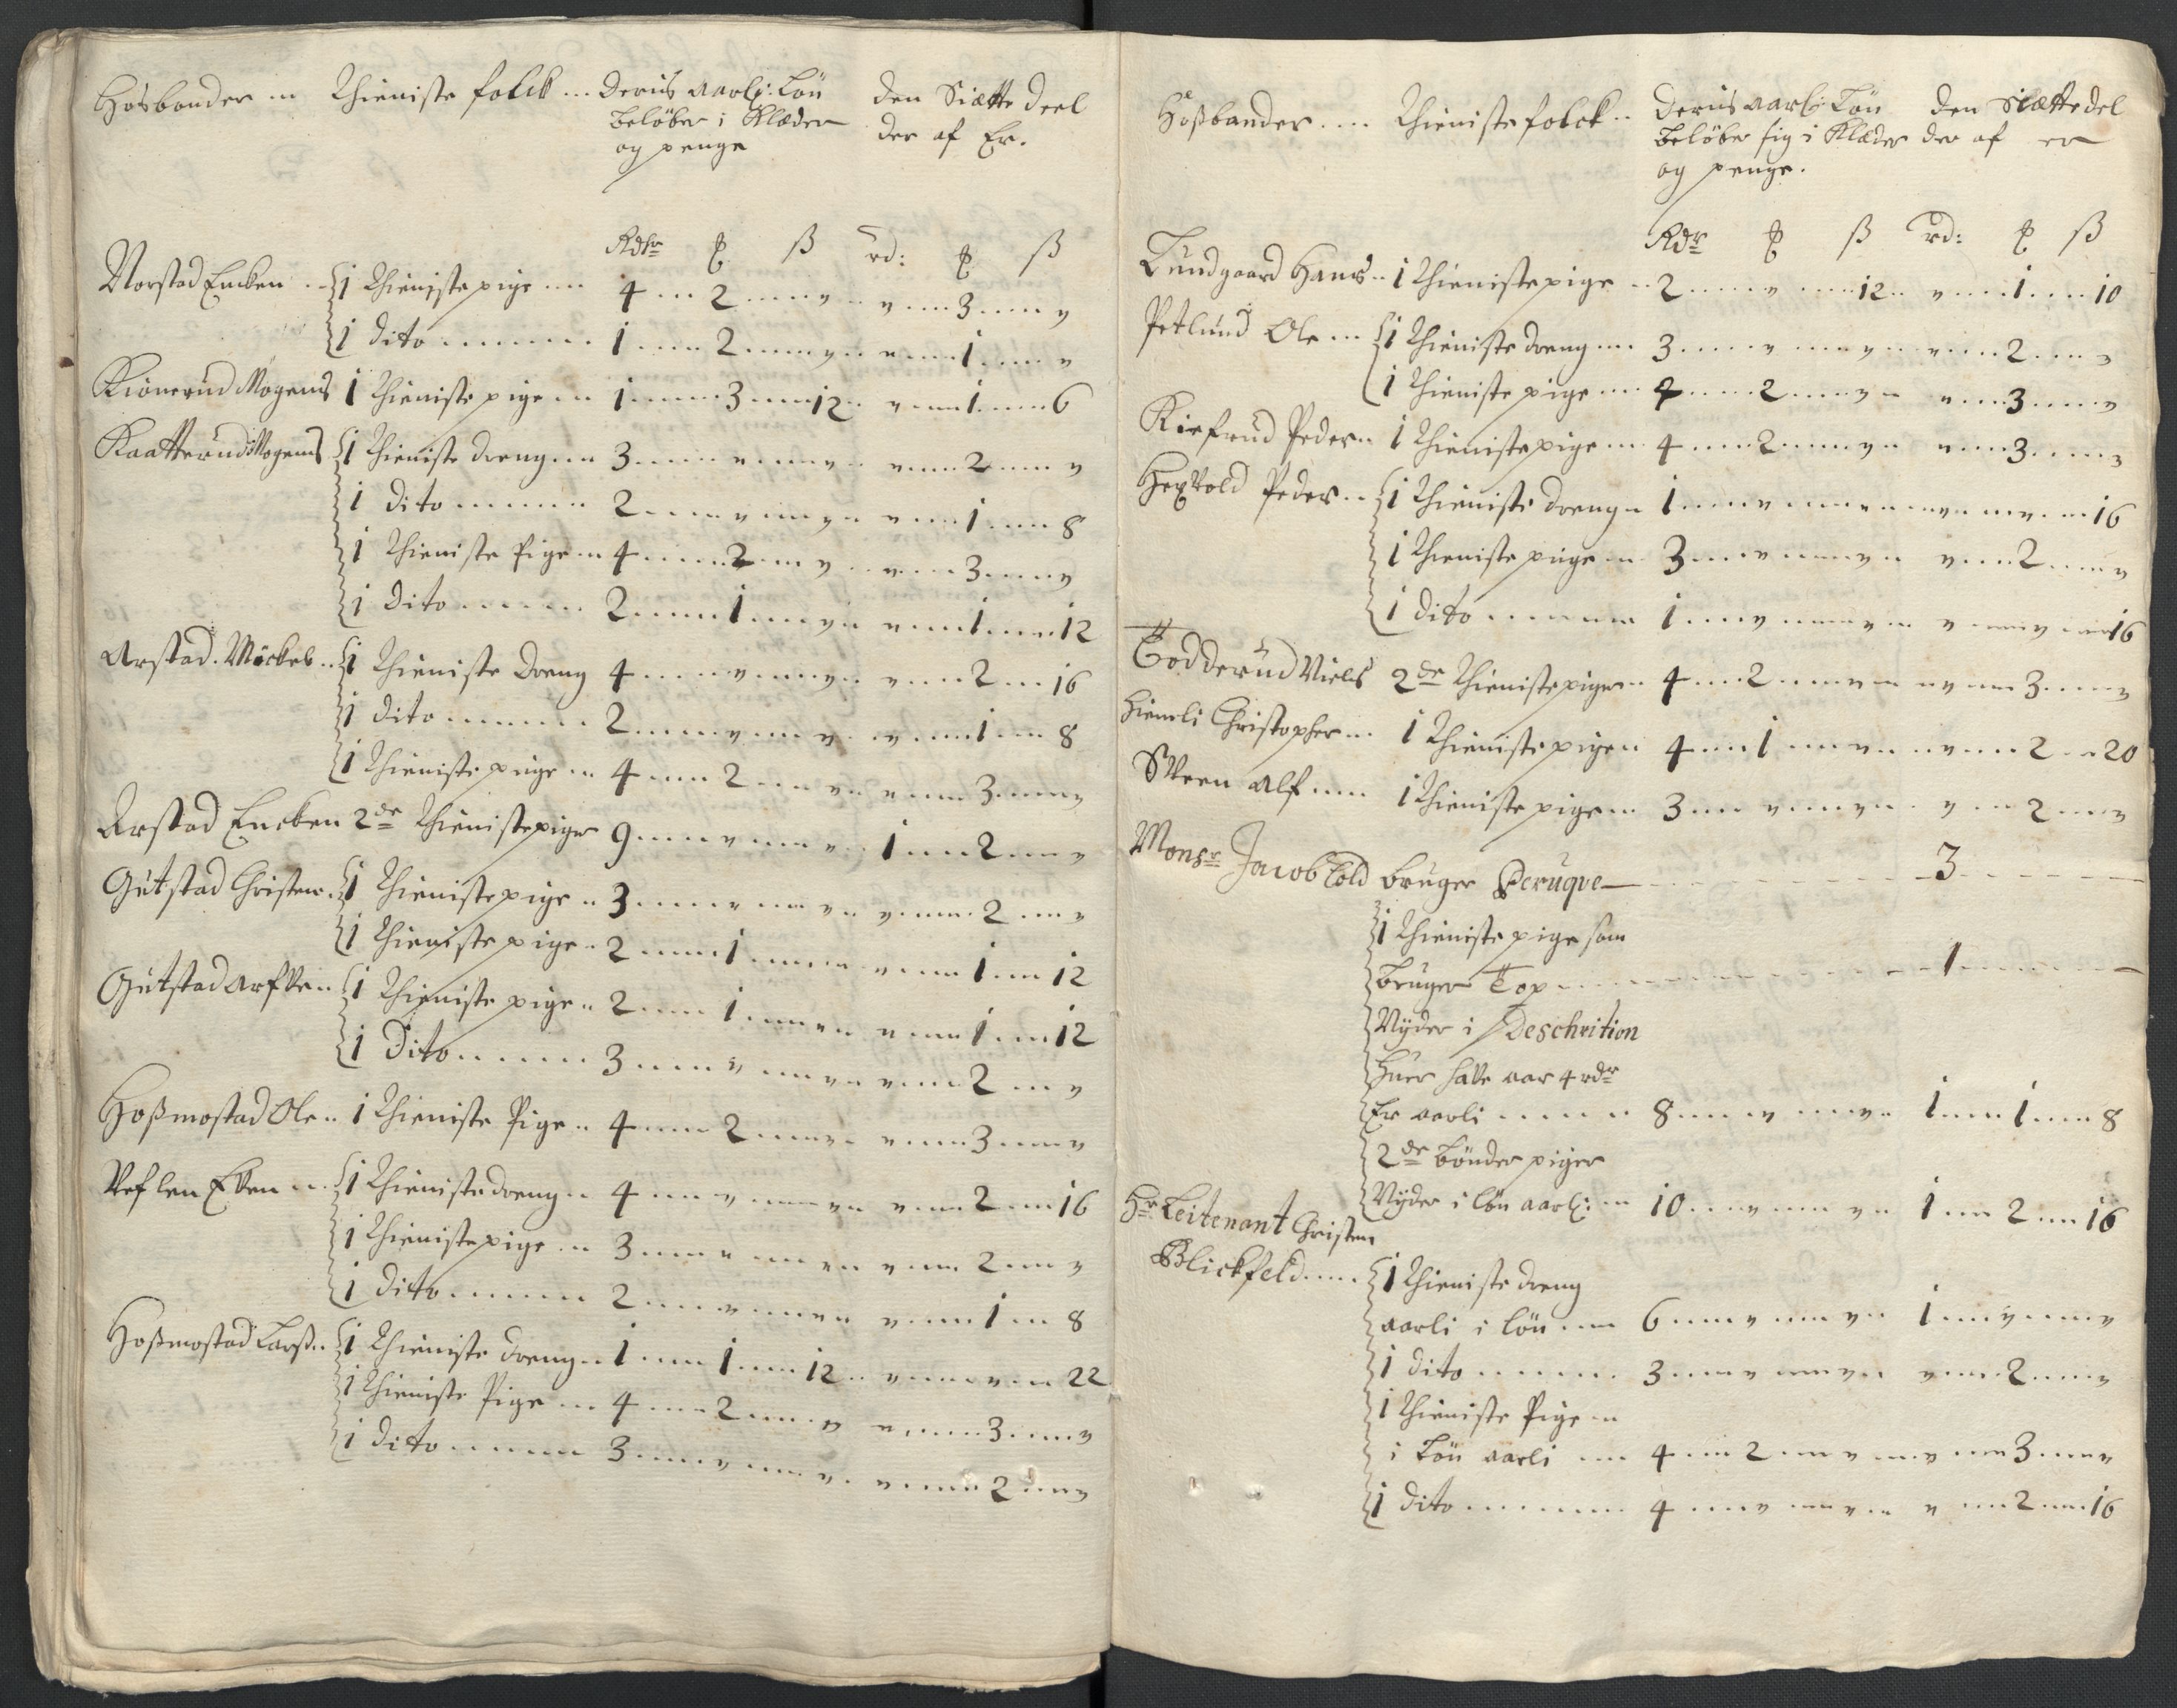 Hosbonder ... Thieniste folck ... Deris aarl: Løn den Siætte Deel
beløber i Klæder der af Er.
og penge
Rdr ß rd: ß
Norstad Encken .. 1 Thieniste pige .... 4 ... 2 .... " .. " .... 3 .... "
1 dito ........ 1 .... 2 .... " .. " .... 1 .... "
Kiønerud Mogens 1 Thieniste pige ... 1 .... 3 .... 12 .. " .... 1 .... 6
Kaatterud Mogens 1 Thieniste dreng ... 3 .... " .... " .. " .... 2 .... "
1 dito ....... 2 .... " .... " .. " .... 1 .... 8
1 Thieniste Pige ... 4 .... 2 .... " .. " .... 3 .... "
1 dito ...... 2 .... 1 .... " .. " .... 1 .... 12
Arstad Mickel .. 1 Thieniste dreng 4 .... " .... " .. " .... 2 ... 16
1 dito ....... 2 .... " .... " .. " .... 1 .... 8
1 Thieniste pige ... 4 .... 2 .... " .. " .... 3 .... "
Arstad Encken 2de Thieniste piger 9 .... " .... " .. 1 .... 2 .... "
Gutstad Christen . 1 Thieniste pige .. 3 .... " .... " .. " .... 2 .... "
1 Thieniste pige .. 2 .... 1 .... " .. " .... 1 .... 12
Gutstad Arfve .. 1 Thieniste pige .. 2 .... 1 .... " .. " .... 1 .... 12
1 Dito ...... 3 .... " .... " .. " .... 2 .... "
Hoßmostad Ole .. 1 Thieniste Pige .. 4 .... 2 .... " .. " .... 3 .... "
Even ... 1 Thieniste dreng .. 4 .... " .... " .. " .... 2 .... 16
1 Thieniste pige ... 3 .... " .... " .. " .... 2 .... "
1 dito ....... 2 .... " .... " .. " .... 1 .... 8
Hoßmostad Larß .. 1 Thieniste dreng .. 1 .... 1 .... 12 .. " .... " .... 22
1 Thieniste Pige ... 4 .... 2 .... " .. " .... 3 .... "
1 dito ....... 3 .... " .... " .. " .... 2 .... "
Hoßbander .... Thieniste folck .. Deris aarl: Løn den Siætte del
beløber sig i Klæder der af er
og penge.
Rdr ß rd: ß
Lundgaard Hans .. 1 Thieniste pige .. 2 .... " .... 12 .. " .... 1 .... 10
Petlund Ole ... 1 Thieniste dreng ... 3 .... " .... " .. " .... 2 .... "
1 Thieniste pige ... 4 .... 2 .... " .. " .... 3 .... "
Peder .. 1 Thieniste pige ... 4 .... 2 .... " .. " .... 3 .... "
Peder .. 1 Thieniste dreng .. 1 .... " .... " .. " .... " .... 16
1 Thieniste piige ... 3 .... " .... " .. " .... 2 .... "
1 dito ....... 1 .... " .... " .. " .... " .... 16
Todderud Niels 2de Thieniste piger .. 4 .... 2 .... " .. " .... 3 .... "
Hiemli Christopher ... 1 Thieniste pige .. 4 .... 1 .... " .. " .... 2 .... 20
Sveen Alf .... 1 Thieniste pige ... 3 .... " .... " .. " .... 2 .... "
Monsr Jacob Cold bruger Peruqve 3
1 Thieniste pige som
bruger Top ........ 1
Nyder i Deschrition
huer halve aar 4 rdr
Er aarli ...... 8 .... " .... " .. 1 .... 1 .... 8
2de bønder piger
Nyder i Løn aarl: ... 10 .... " .... " .. 1 .... 2 .... 16
Hr Leitenant Christen
Blickfeld ..... 1 Thieniste dreng
aarli i løn ... 6 .... " .... " .. 1 .... " .... "
1 dito ....... 3 .... " .... " .. " .... 2 .... "
1 Thieniste Pige ..
i Løn aarli ... 4 .... 2 .... " .. " .... 3 .... "
1 dito ........ 4 .... " .... " .. " .... 2 .... 16